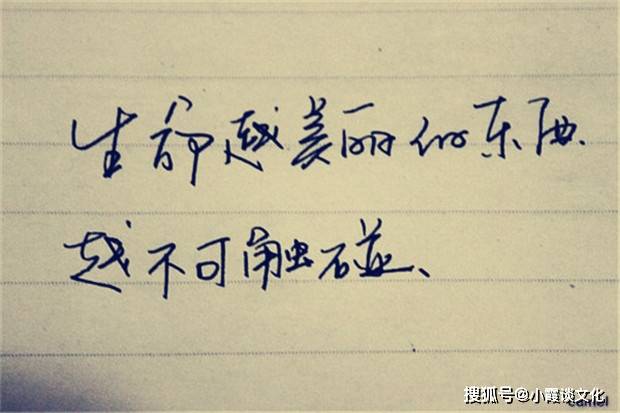 生命越美丽的东西
越不可触碰、
搜狐号@小霞谈文化